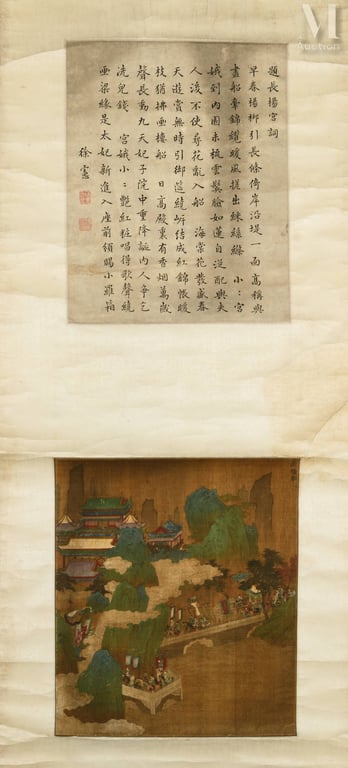 題長楊宮詞
早春楊柳引長條倚岸沿堤一面高稱與
畫船牽錦纜暖風搓出綵絲絛 小〻宮
娥到內園未梳雲鬢臉如蓮自從配與夫
人後不使尋花亂入船 海棠花發盛春
天遊賞無時引御筵繞岍結成紅錦帳暖
枝猶拂畫樓船 日高殿裏有香烟萬歲
聲長動九天妃子院中重降誕內人爭乞
洗兒錢 宮娥小〻艷紅粧唱得歌聲繞
画梁緣是太妃新進入座前頒賜小羅箱
徐憲
M
Auction